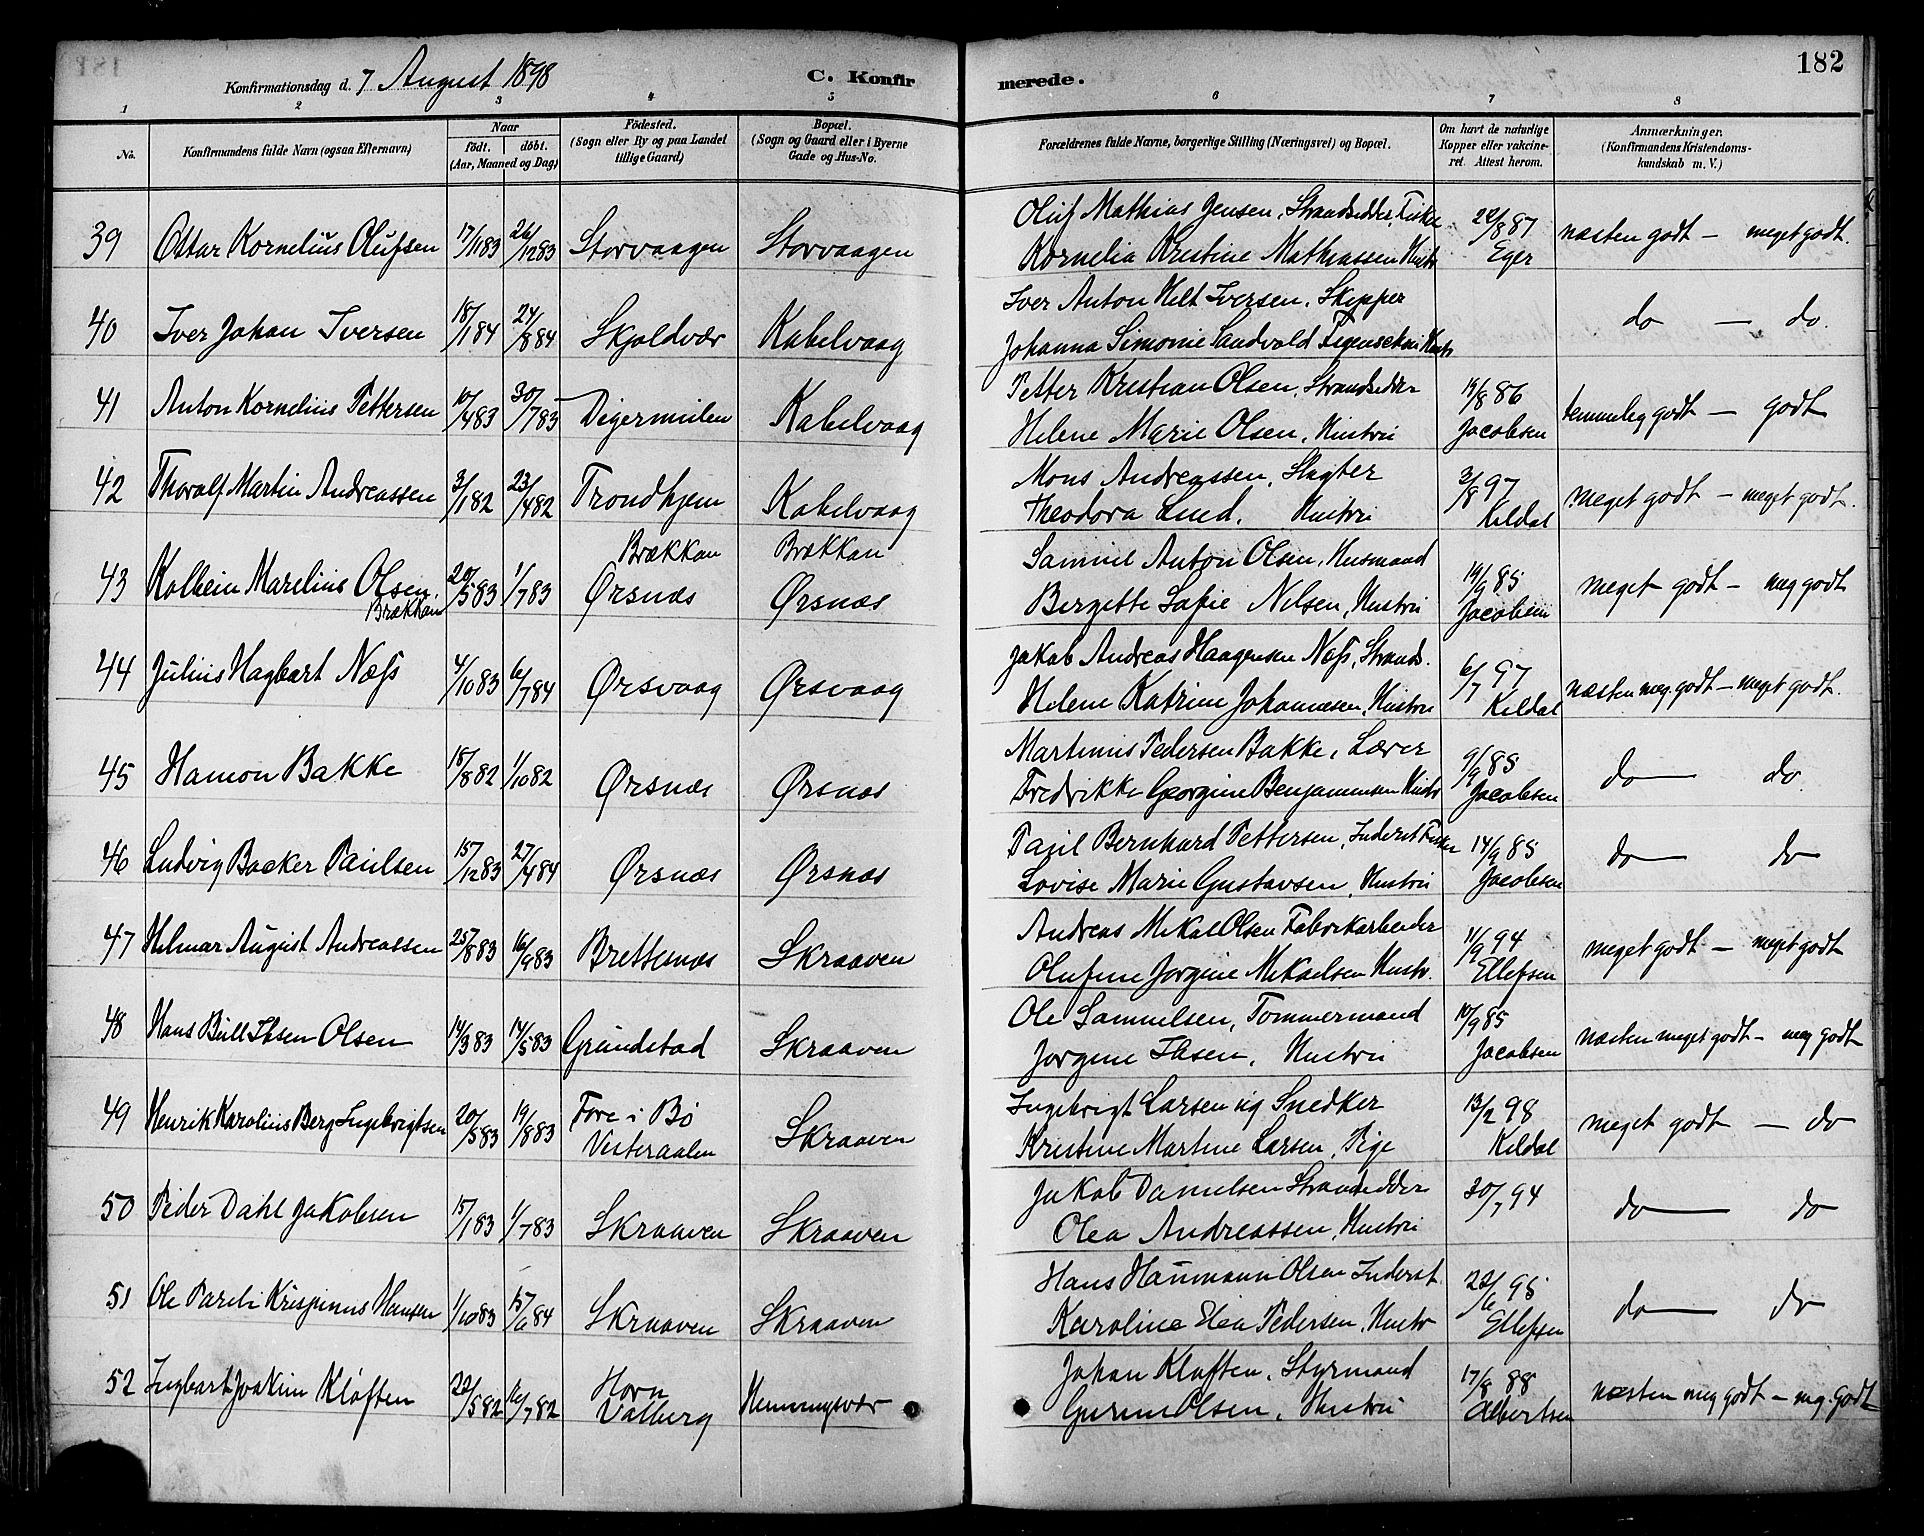 182
Konfirmationsdag d. 7 August 1898 C. Konfir merede.
1 2 3 4 5 6 7 8
No. Konfirmandens fulde Navn (ogsaa Efternavn) Naar födt. döbt. (Aar, Maaned og Dag) Födested. (Sogn eller By og paa Landet tillige Gaard) Bopæl. (Sogn og Gaard eller i Byerne Gade og Hus-No. Forældrenes fulde Navne, borgerlige Stilling (Næringsvei) og Bopæl. Om havt de naturlige Kopper eller vakcineret. Attest herom. Anmærkninger. (Konfirmandens Kristendomskundskab m. V.)
Oluf Mathias Jensen, Strandsidder, Fisker
39 Ottar Kornelius Olufsen 17/11 83 26/12 83 Storvaagen Storvaagen 22/8 87 næsten godt — meget godt.
Kornelia Kristine Mathiassen Hustr Eger
Iver Anton Hilt Iversen, Skipper
40 Iver Johan Iversen 18/1 84 24/8 84 Skjoldvær Kabelvaag do — do.
Johanna Simonie Sandvold Hustr
Petter Kristian Olsen, Strandsidder
41 Anton Kornelius Pettersen 10/4 83 30/7 83 Digermulen Kabelvaag 19/8 86 temmelig godt — godt
Helene Marie Olsen, Hustru Jacobsen
Mons Andreassen, Slagter
42 Thoralf Martin Andreassen 3/1 82 23/4 82 Trondhjem Kabelvaag 3/8 97 meget godt — meget godt.
Theodora Lind, Hustru Kildal
Brækkan Brækkan Samuel Anton Olsen, Husmand
43 Kolbein Marelius Olsen 20/5 83 1/7 83 Ørsnæs Ørsnæs 19/9 85 meget godt — meg godt
Brækkan Bergitte Sofie Nilsen, Hustru Jacobsen
Jakob Andreas Haagensen Næss, Strands.
44 Julius Hagbart Næss 4/10 83 6/7 84 Ørsvaag Ørsvaag 6/7 97 næsten meg. godt — meget godt.
Helene Katrine Johannesen, Hustru Kildal
Martinus Pedersen Bakke, Lærer
45 Hamon Bakke 18/8 82 1/10 82 Ørsnæs Ørsnæs 9/9 85 do — do
Fredrikke Georgine Benjaminsen Hustr Jacobsen
Paul Bernhard Pettersen, Inderst Fisker
46 Ludvig Backer Paulsen 15/12 83 27/4 84 Ørsnæs Ørsnæs 14/9 85 do — do
Lovise Marie Gustavsen, Hustru Jacobsen
Andreas Mikal Olsen Fabrikarbeider
47 Hilmar August Andreassen 25/8 83 16/9 83 Brettesnæs Skraaven 11/9 94 meget godt — meget godt
Olufine Jørgine Mikaelsen Hustr. Ellefsen
Ole Samuelsen, Tømmermand
48 Hans Bull Ibsen Olsen 14/3 83 14/5 83 Grundstad Skraaven 10/9 85 næsten meget godt — meg godt
Jørgine Ibsen, Hustru Jacobsen
Ingebrigt Larsen ug Snedker
49 Henrik Karolius Berg Ingebrigtsen 20/5 83 19/8 83 Fore i Bø Vesteraalen Skraaven 13/2 98 meget godt — do
Kristine Martine Larsen, Pige Kildal
Jakob Danielsen Strandsidder
50 Peder Dahl Jakobsen 15/1 83 1/7 83 Skraaven Skraaven 30/7 94 do — do
Olea Andreassen, Hustru
Hans Haumann Olsen Inderst
51 Ole Pareli Krispinus Hansen 1/10 83 15/6 84 Skraaven Skraaven 22/6 95 do — do
Karoline Elea Pedersen, Hustr Ellefsen
Johan Kløften, Styrmand
52 Ingbart Joakim Kløften 22/5 82 16/7 82 Horn Valberg Henningsvær 17/8 88 næsten meg godt — meg. godt
Gurine Olsen, Hustru Albertsen